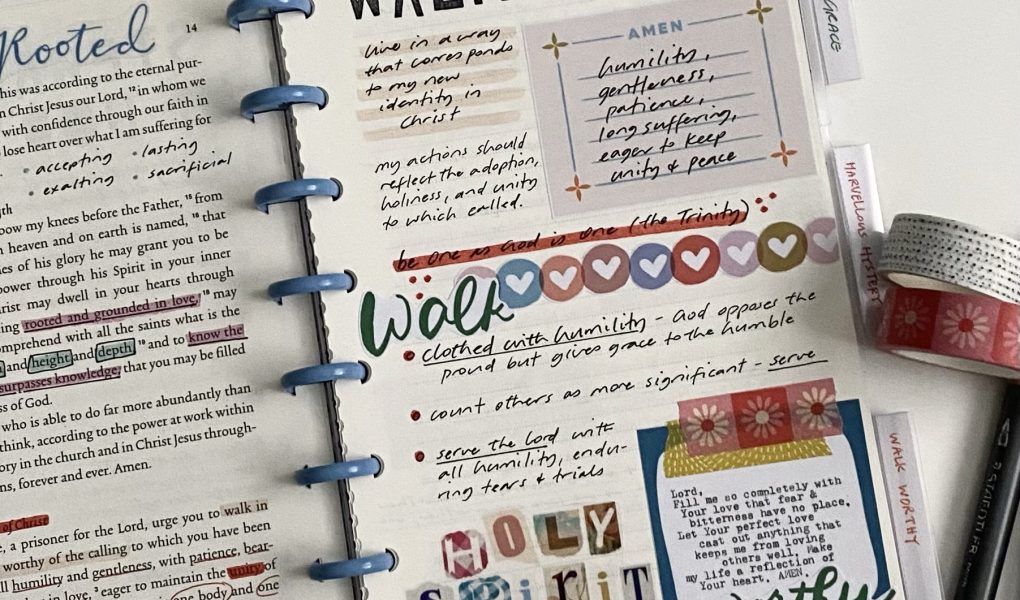 Rooted
14
his was according to the eternal pur-
n Christ Jesus our Lord, ¹² in whom we
with confidence through our faith in
lose heart over what I am suffering for
• accepting • lasting
• exalting • sacrificial
gth
bow my knees before the Father, ¹⁵ from
n heaven and on earth is named, ¹⁶ that
hes of his glory he may grant you to be
power through his Spirit in your inner
rist may dwell in your hearts through
ing rooted and grounded in love, ¹⁸ may
mprehend with all the saints what is the
and height and depth, ¹⁹ and to know the
surpasses knowledge, that you may be filled
ss of God.
who is able to do far more abundantly than
think, according to the power at work within
ory in the church and in Christ Jesus through-
ns, forever and ever. Amen.
of Christ
e, a prisoner for the Lord, urge you to walk in
worthy of the calling to which you have been
ll humility and gentleness, with patience, bear-
in love, ³ eager to maintain the unity of
one body and one
live in a way
that corresponds
to my new
identity in
Christ
my actions should
reflect the adoption,
holiness, and unity
to which called.
AMEN
humility,
gentleness,
patience,
long suffering,
eager to keep
unity & peace
be one as God is one (the Trinity)
Walk
• clothed with humility - God opposes the
proud but gives grace to the humble
• count others as more significant - serve
• serve the Lord with
all humility, endu-
ring tears & trials
HOLY
SPiriT
Lord,
Fill me so completely with
Your love that fear &
bitterness have no place.
Let Your perfect love
cast out anything that
keeps me from loving
others well. Make
my life a reflection of
Your heart. AMEN.
GRACE
MARVELLOUS MYSTERY
WALK WORTHY
STAEDTLER